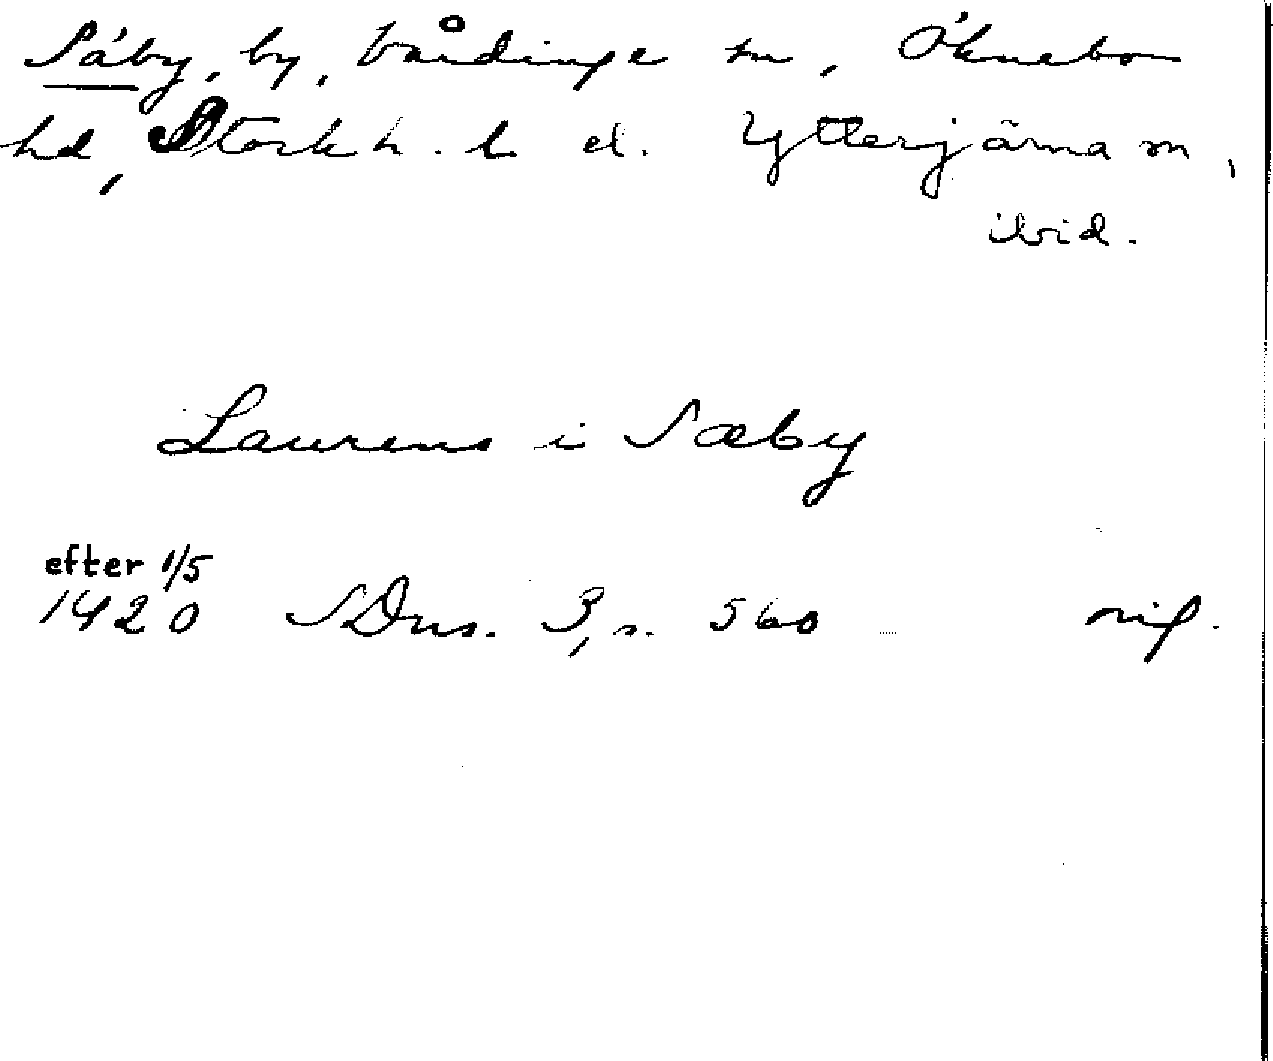 Säby, by, Vårdinge sn, Öknebo
hd, Stockh. l. el. Ytterjärna sn,
ibid.
Laurens i Sæby
efter 1/5
1420 SDns. 3, s. 560